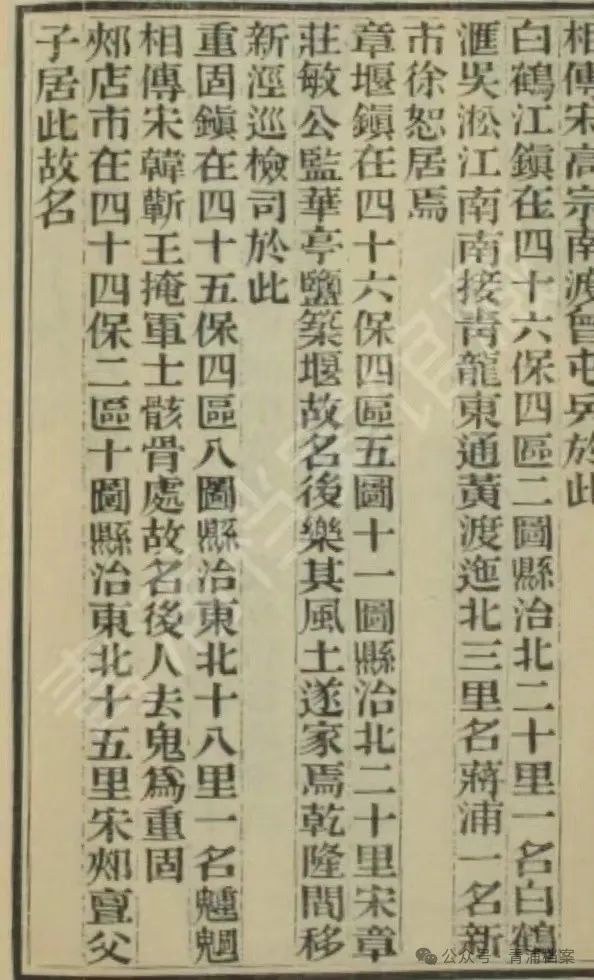 相傳宋高宗南渡曾屯兵於此
白鶴江鎮在四十六保四區二圖縣治北二十里一名白鶴
滙吳淞江南南接青龍東通黃渡迤北三里名蔣浦一名新
市徐恕居焉
章堰鎮在四十六保四區五圖十一圖縣治北二十里宋章
莊敏公監華亭鹽築堰故名後樂其風土遂家焉乾隆間移
新涇巡檢司於此
重固鎮在四十五保四區八圖縣治東北十八里一名
相傳宋韓蘄王掩軍士骸骨處故名後人去鬼爲重固
郟店市在四十四保二區十圖縣治東北十五里宋郟亶父
子居此故名
公众号·青浦档案